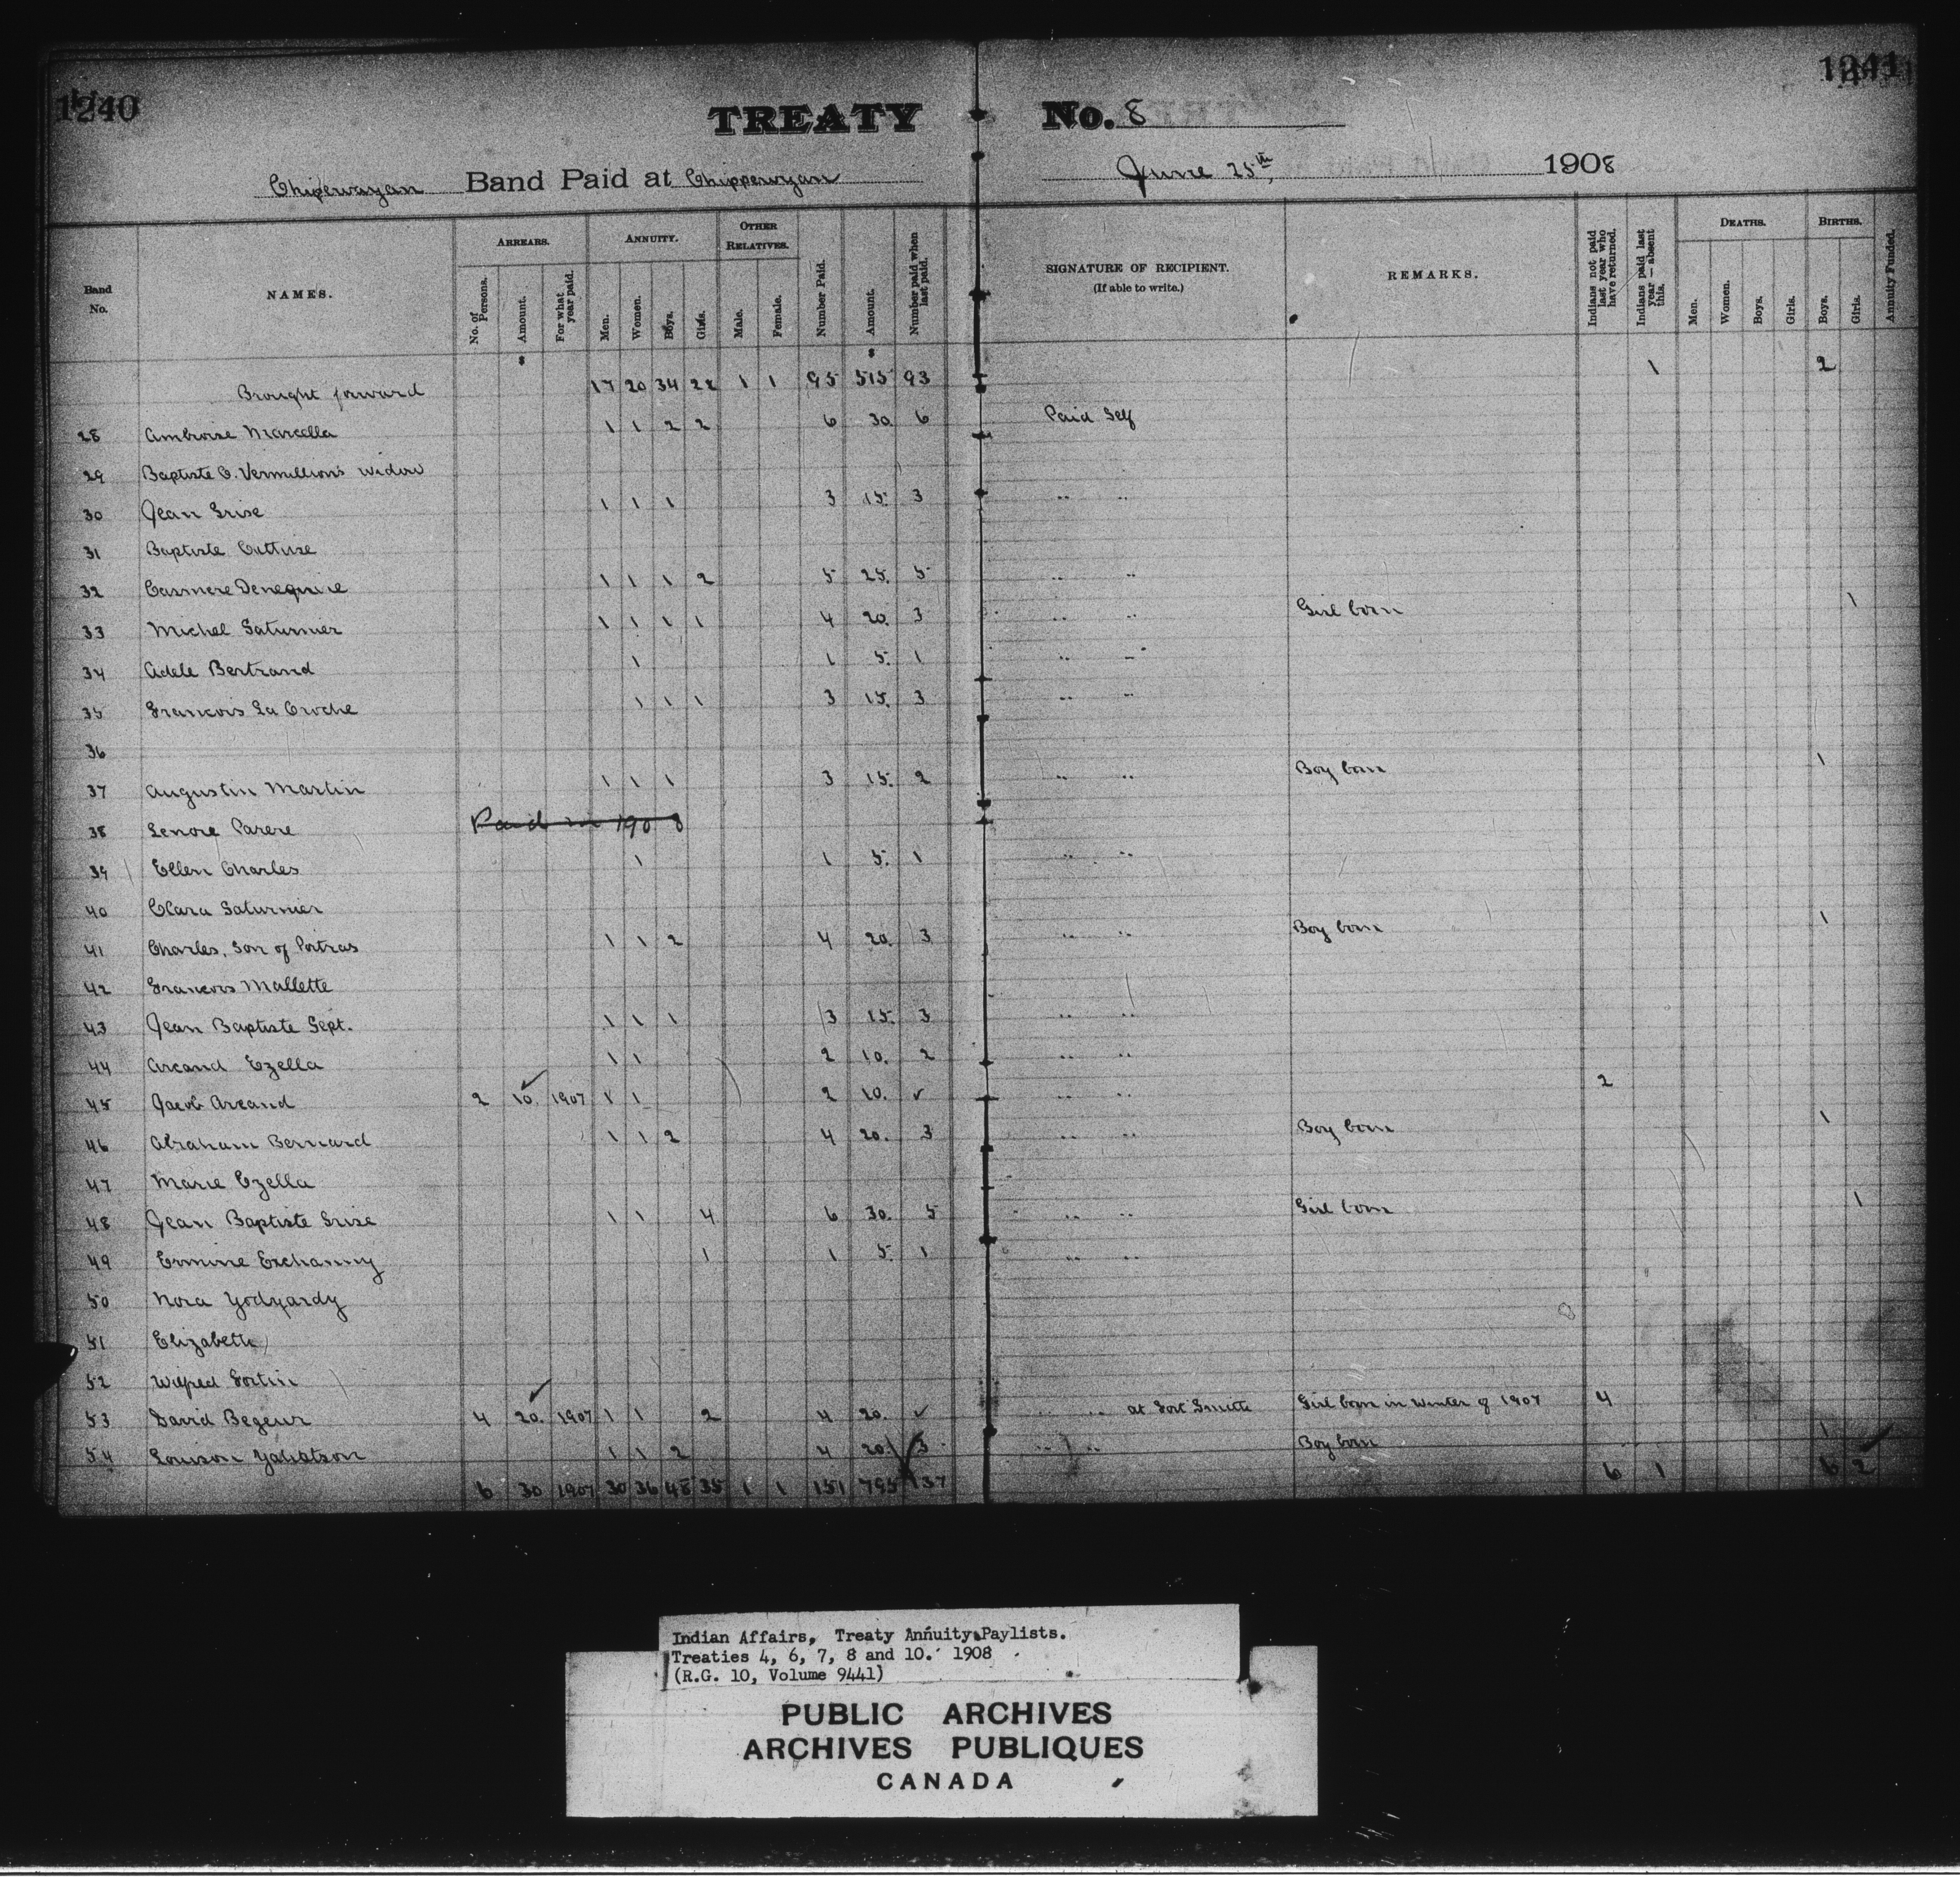 1240
1241
TREATY No. 8
Chipewayan Band Paid at Chippewyan June 25th 1908
Band No. NAMES. ARREARS. ANNUITY. OTHER RELATIVES. Number Paid. Amount. Number paid when last paid. SIGNATURE OF RECIPIENT. (If able to write.) REMARKS. Indians not paid last year who have returned. Indians paid last year — absent this. DEATHS. BIRTHS. Annuity Funded.
No. of Persons. Amount. For what year paid. Men. Women. Boys. Girls. Male. Female. Men. Women. Boys. Girls. Boys. Girls.
$ $
Brought forward 17 20 34 22 1 1 95 515 93 1 2
28 Ambroise Marcella 1 1 2 2 6 30. 6 Paid Self
29 Baptiste C. Vermillion's Widow
30 Jean Grise 1 1 1 3 15. 3 " "
31 Baptiste
32 Casmere 1 1 1 2 5 25. 5 " "
33 Michel Saturnier 1 1 1 1 4 20. 3 " " Girl born 1
34 Adele Bertrand 1 1 5. 1 " "
35 Francois La Croche 1 1 1 3 15. 3 " "
36
37 Augustin Martin 1 1 1 3 15. 2 " " Boy born 1
38 Lenore Parere Paid in 1908
39 Ellen Charles 1 1 5. 1 " "
40 Clara Saturnier
41 Charles, Son of Potras 1 1 2 4 20. 3 " " Boy born 1
42 Francois Mallette
43 Jean Baptiste Sept. 1 1 1 3 15. 3 " "
44 Arcand Ezella 1 1 2 10. 2 " "
45 Jacob Arcand 2 10. ✓ 1907 1 1 2 10. ✓ " " 2
46 Abraham Bernard 1 1 2 4 20. 3 " " Boy born 1
47 Marie Ezella
48 Jean Baptiste Grise 1 1 4 6 30. 5 " " Girl born 1
49 Ermine Exchanny 1 1 5. 1 " "
50 Nora
51 Elizabeth
52 Wilfred Fortin
53 David Begeur 4 20. ✓ 1907 1 1 2 4 20. ✓ " " at Fort Smith Girl born in Winter of 1907 4
54 Louison 1 1 2 4 20. 3 " " Boy born 1
6 30 1907 30 36 48 35 1 1 151 795 137 6 1 6 2 ✓
Indian Affairs, Treaty Annuity Paylists.
Treaties 4, 6, 7, 8 and 10. 1908
(R.G. 10, Volume 9441)
PUBLIC ARCHIVES
ARCHIVES PUBLIQUES
CANADA